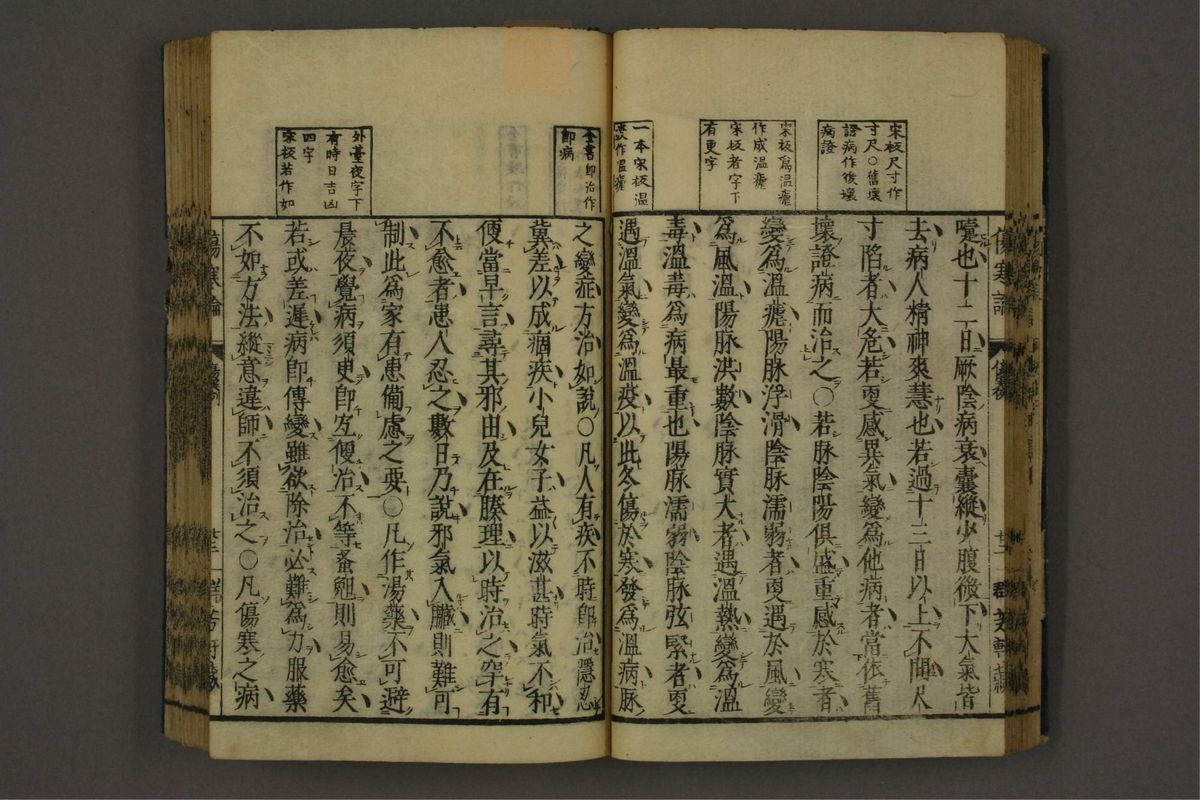 宋板尺寸作
寸尺○舊壞
證病作後壞
病證
宋板爲溫瘧
作成溫瘧
宋板者字下
有更字
一本宋板溫
疫作溫瘧
噫也十二日厥陰病衰囊縱少腹微下大氣皆
去病人精神爽慧也若過十三日以上不間尺
寸陷者大危若更感異氣變爲他病者當依舊
壞證病而治之○若脉陰陽俱盛重感於寒者
變爲溫瘧陽脉浮滑陰脉濡弱者更遇於風變
爲風溫陽脉洪數陰脉實大者遇溫熱變爲溫
毒溫毒爲病最重也陽脉濡弱陰脉弦緊者更
遇溫氣變爲溫疫以此冬傷於寒發爲溫病脉
全書即治作
即病
外臺夜字下
有時日吉凶
四字
宋板若作如
之變症方治如說○凡人有疾不時即治隱忍
冀差以成痼疾小兒女子益以滋甚時氣不和
便當早言尋其邪由及在腠理以時治之罕有
不愈者患人忍之數日乃說邪氣入臟則難可
制此爲家有患備慮之要○凡作湯藥不可避
晨夜覺病須臾即宜便治不等蚤晚則易愈矣
若或差遲病即傳變雖欲除治必難爲力服藥
不如方法縱意違師不須治之○凡傷寒之病
傷寒論
傷寒論